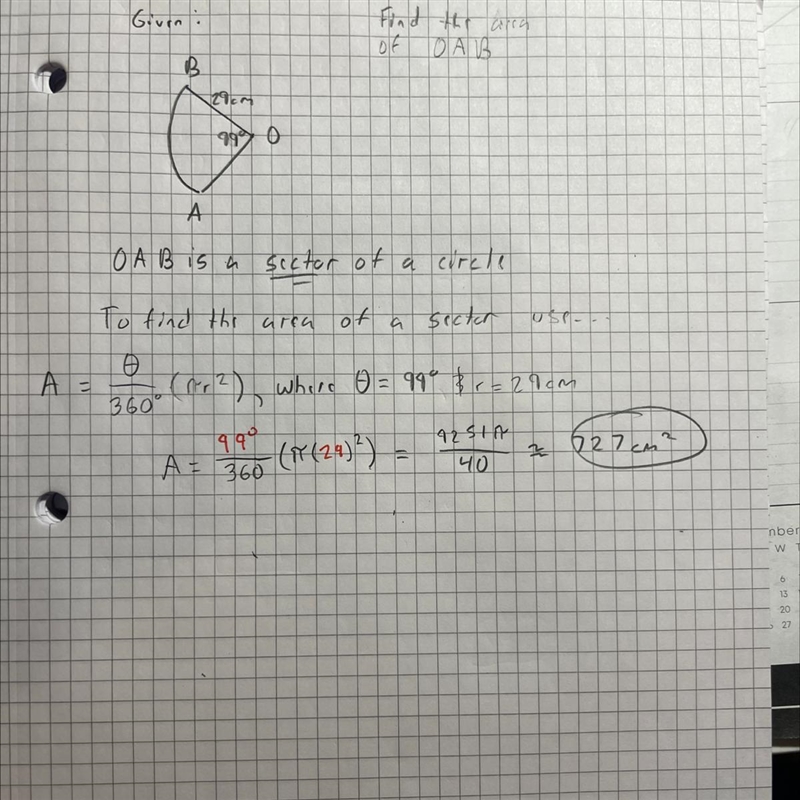 Given:
Find the area
of OAB
B
29cm
99° O
A
OAB is a sector of a circle
To find the area of a sector use...
A = θ/360° (πr²), where θ = 99° & r = 29cm
A = 99°/360 (π(29)²) = 9251π/40 ≈ 727cm²
mber
W T
6
13
20
27